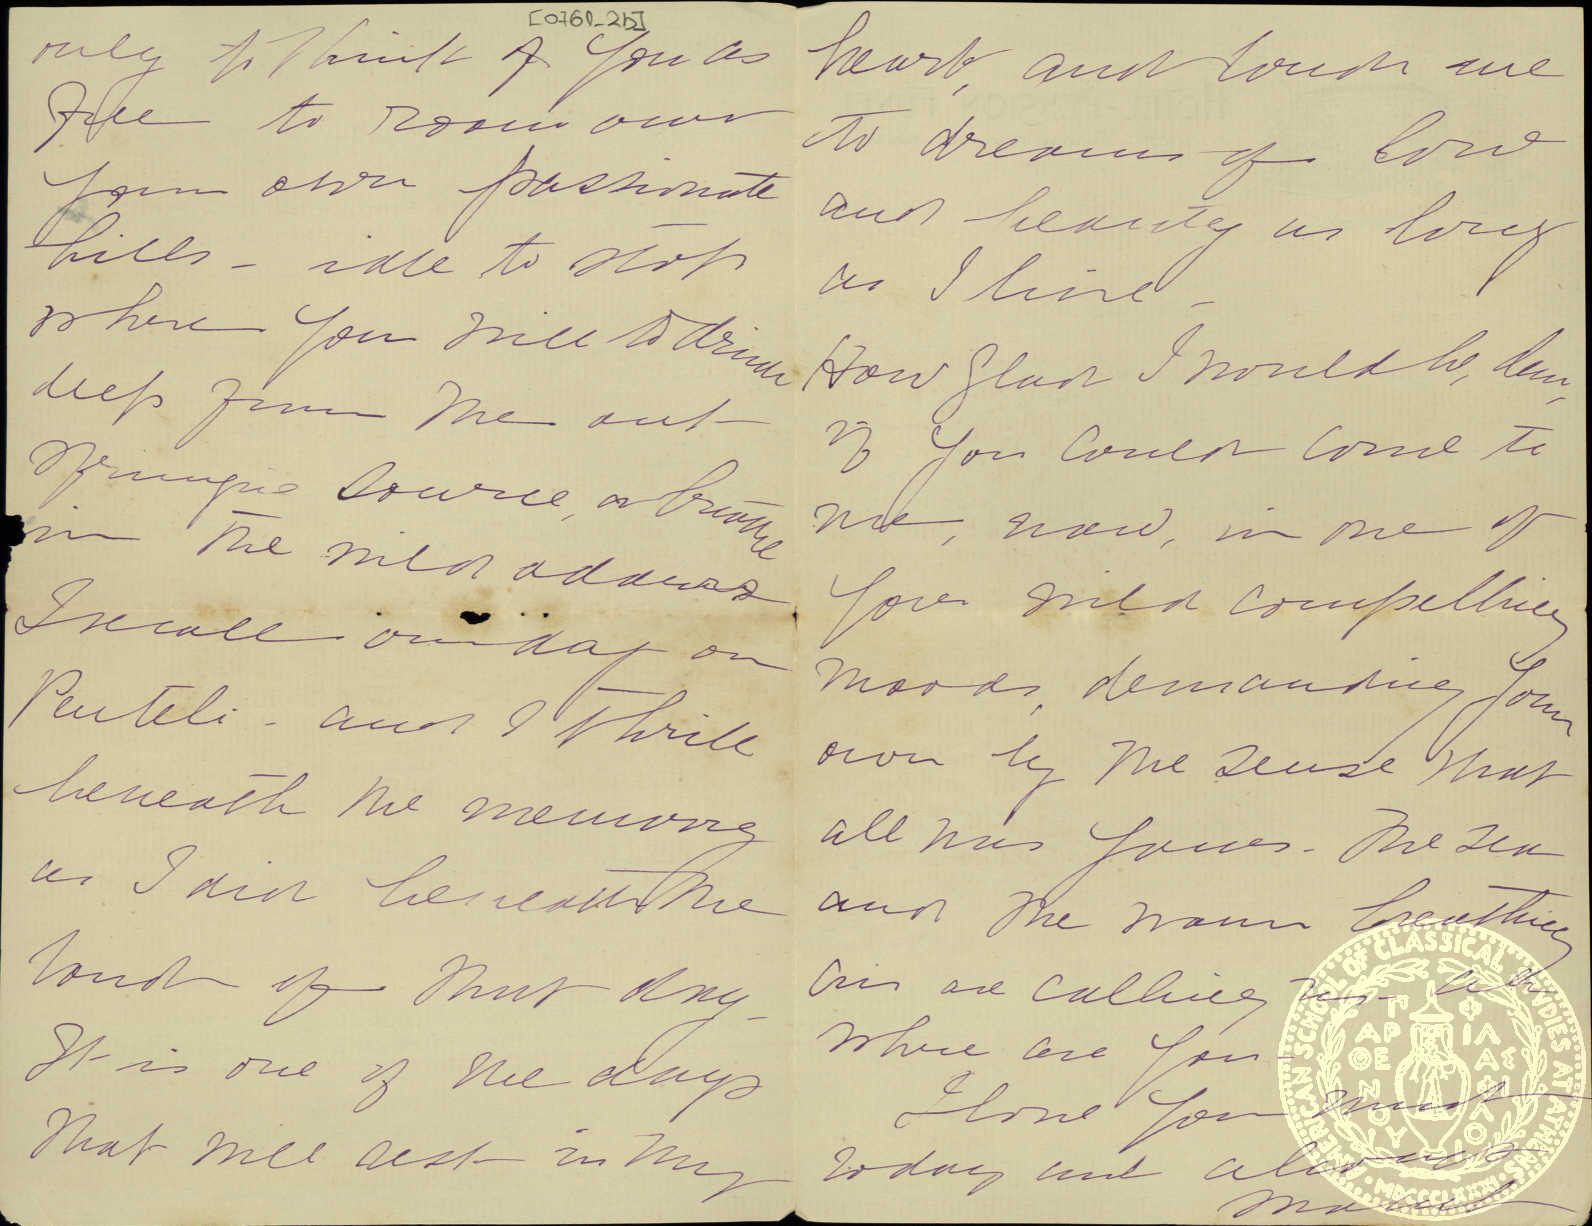 [0760_2b]
only to think of you as
free to roam over
your own passionate
hills - idle to stop
where you will to drink
deep from the out
springing source, or breathe
in the wild odours
I recall our day on
Penteli - and I thrill
beneath the memory
as I did beneath the
touch of that day -
It is one of the days
that will rest in my
heart, and touch me
to dreams of love
and beauty as long
as I live -
How glad I would be, dear,
if you could come to
me, now, in one of
your wild compelling
moods, demanding your
own by the sense that
all was yours - The sea
and the warm breathing
air are calling us -
where are you -
I love you much
today and always
AMERICAN SCHOOL OF CLASSICAL STUDIES AT ATHENS
ΠΑΡΘΕΝΟΥ ΦΙΛΑΣ
MDCCCLXXXI